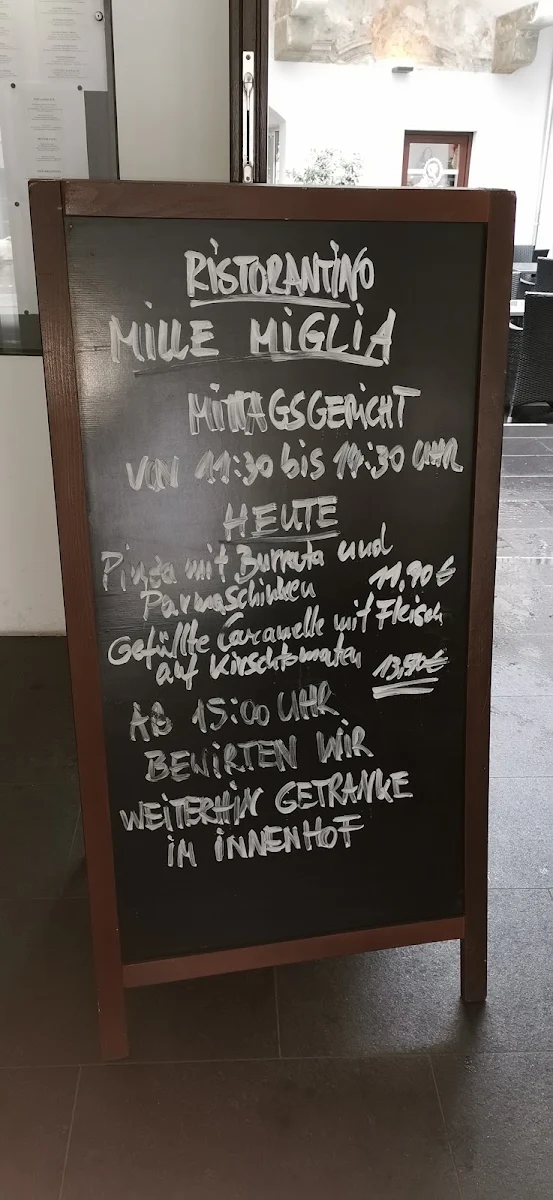 RISTORANTINO
MILLE MIGLIA
MITTAGSGERICHT
VON 11:30 bis 14:30 UHR
HEUTE
Pinsa mit Burrata und
Parmaschinken 11,90 €
Gefüllte Caramelle mit Fleisch
auf Kirschtomaten 13,50 €
AB 15:00 UHR
BEWIRTEN WIR
WEITERHIN GETRANKE
IM INNENHOF